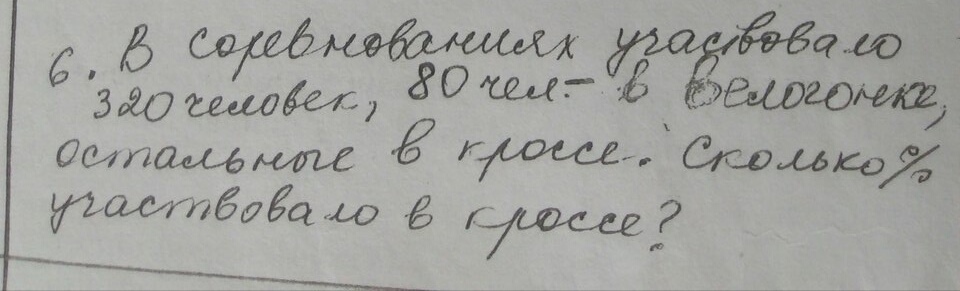 6. В соревнованиях участвовало
320 человек, 80 чел. - в велогонке,
остальные в кроссе. Сколько %
участвовало в кроссе?